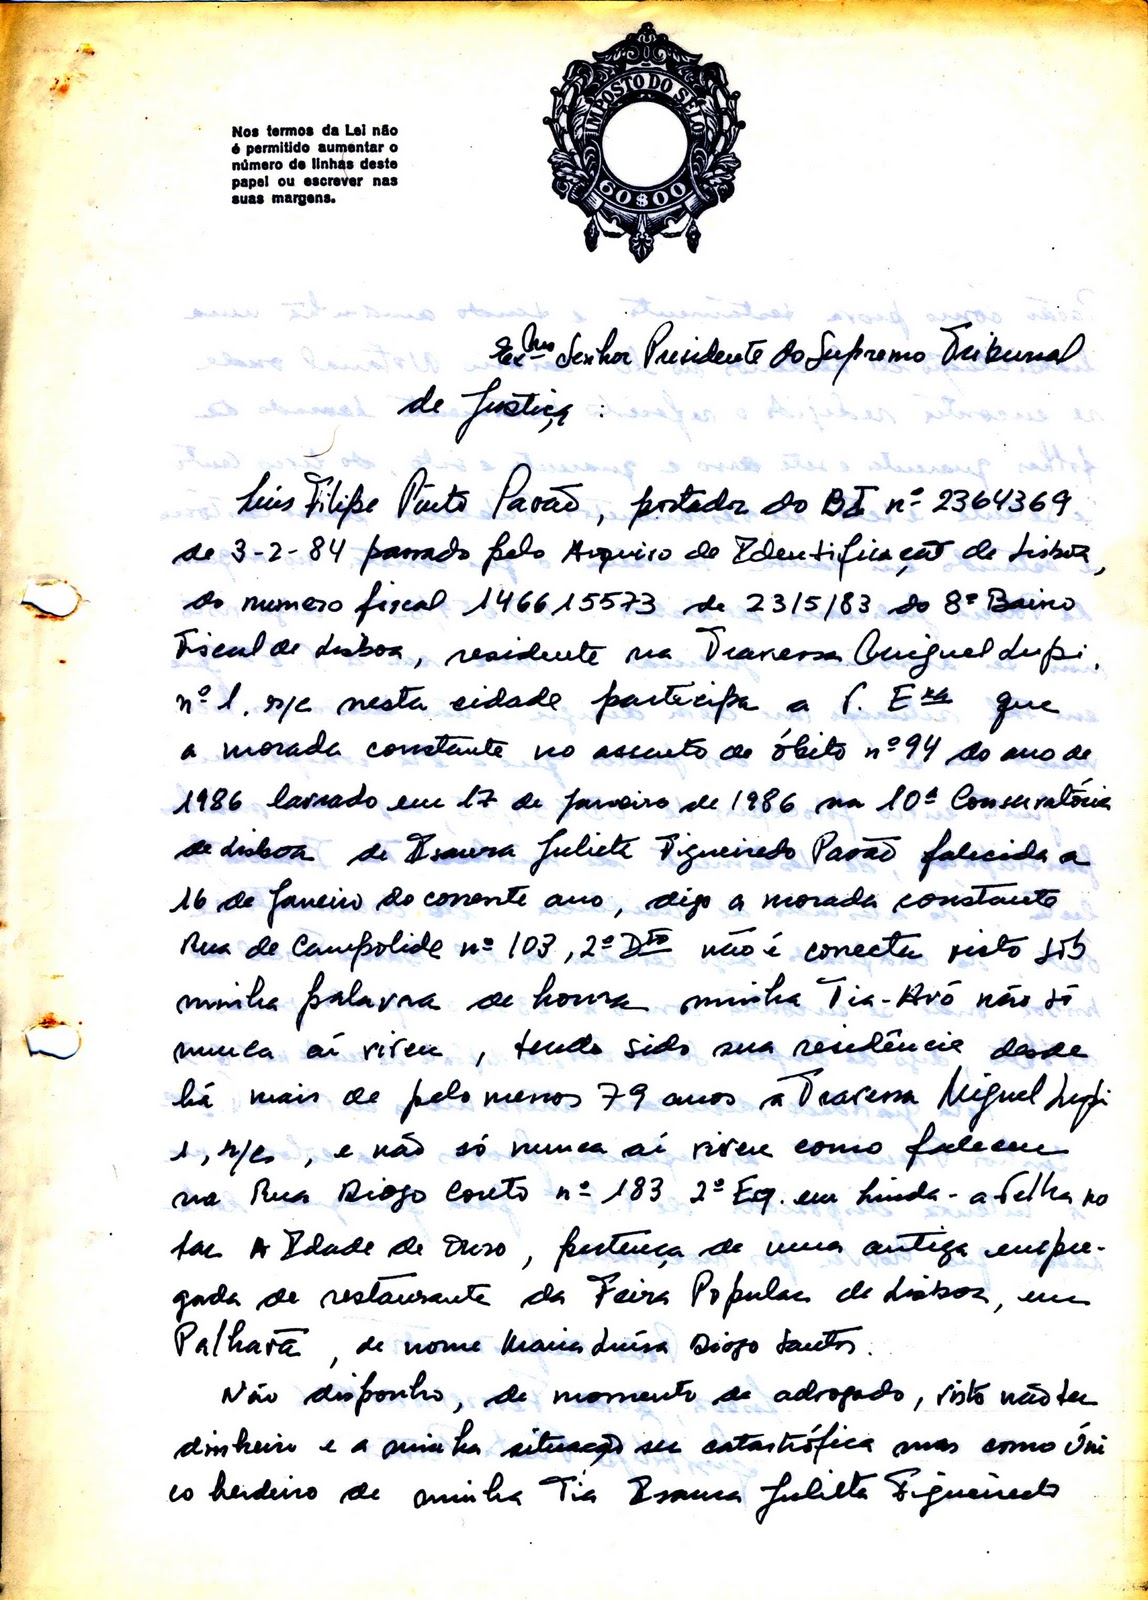 Nos termos da Lei não
é permitido aumentar o
número de linhas deste
papel ou escrever nas
suas margens.
IMPOSTO DO SELO
60$00
Exmo Senhor Presidente do Supremo Tribunal
de Justiça :
Luis Filipe Pinto Pavão, portador do BI nº 2364369
de 3-2-84 passado pelo Arquivo de Identificação de Lisboa,
do numero fiscal 146615573 de 23/5/83 do 8º Bairro
Fiscal de Lisboa, residente na Travessa Miguel Lupi,
nº 1, r/c nesta cidade participa a V. Exa que
a morada constante no assento de óbito nº 94 do ano de
1986 lavrado em 17 de Janeiro de 1986 na 10ª Conservatória
de Lisboa de Isaura Julieta Figueiredo Pavão falecida a
16 de Janeiro do corrente ano, digo a morada constante
Rua de Campolide nº 103, 2º Dto não é correcta visto sob
minha palavra de honra minha Tia-Avó não só
nunca aí viveu, tendo sido sua residência desde
há mais de pelo menos 79 anos a Travessa Miguel Lupi
1, r/c, e não só nunca aí viveu como faleceu
na Rua Diogo Couto nº 183 2º Esq. em Linda-a-Velha no
lar A Idade de Ouro, pertença de uma antiga empre-
gada de restaurante da Feira Popular de Lisboa, em
Palhavã, de nome Maria Luísa Diogo Santos.
Não disponho, de momento de advogado, visto não ter
dinheiro e a minha situação ser catastrófica mas como úni
co herdeiro de minha Tia Isaura Julieta Figueiredo